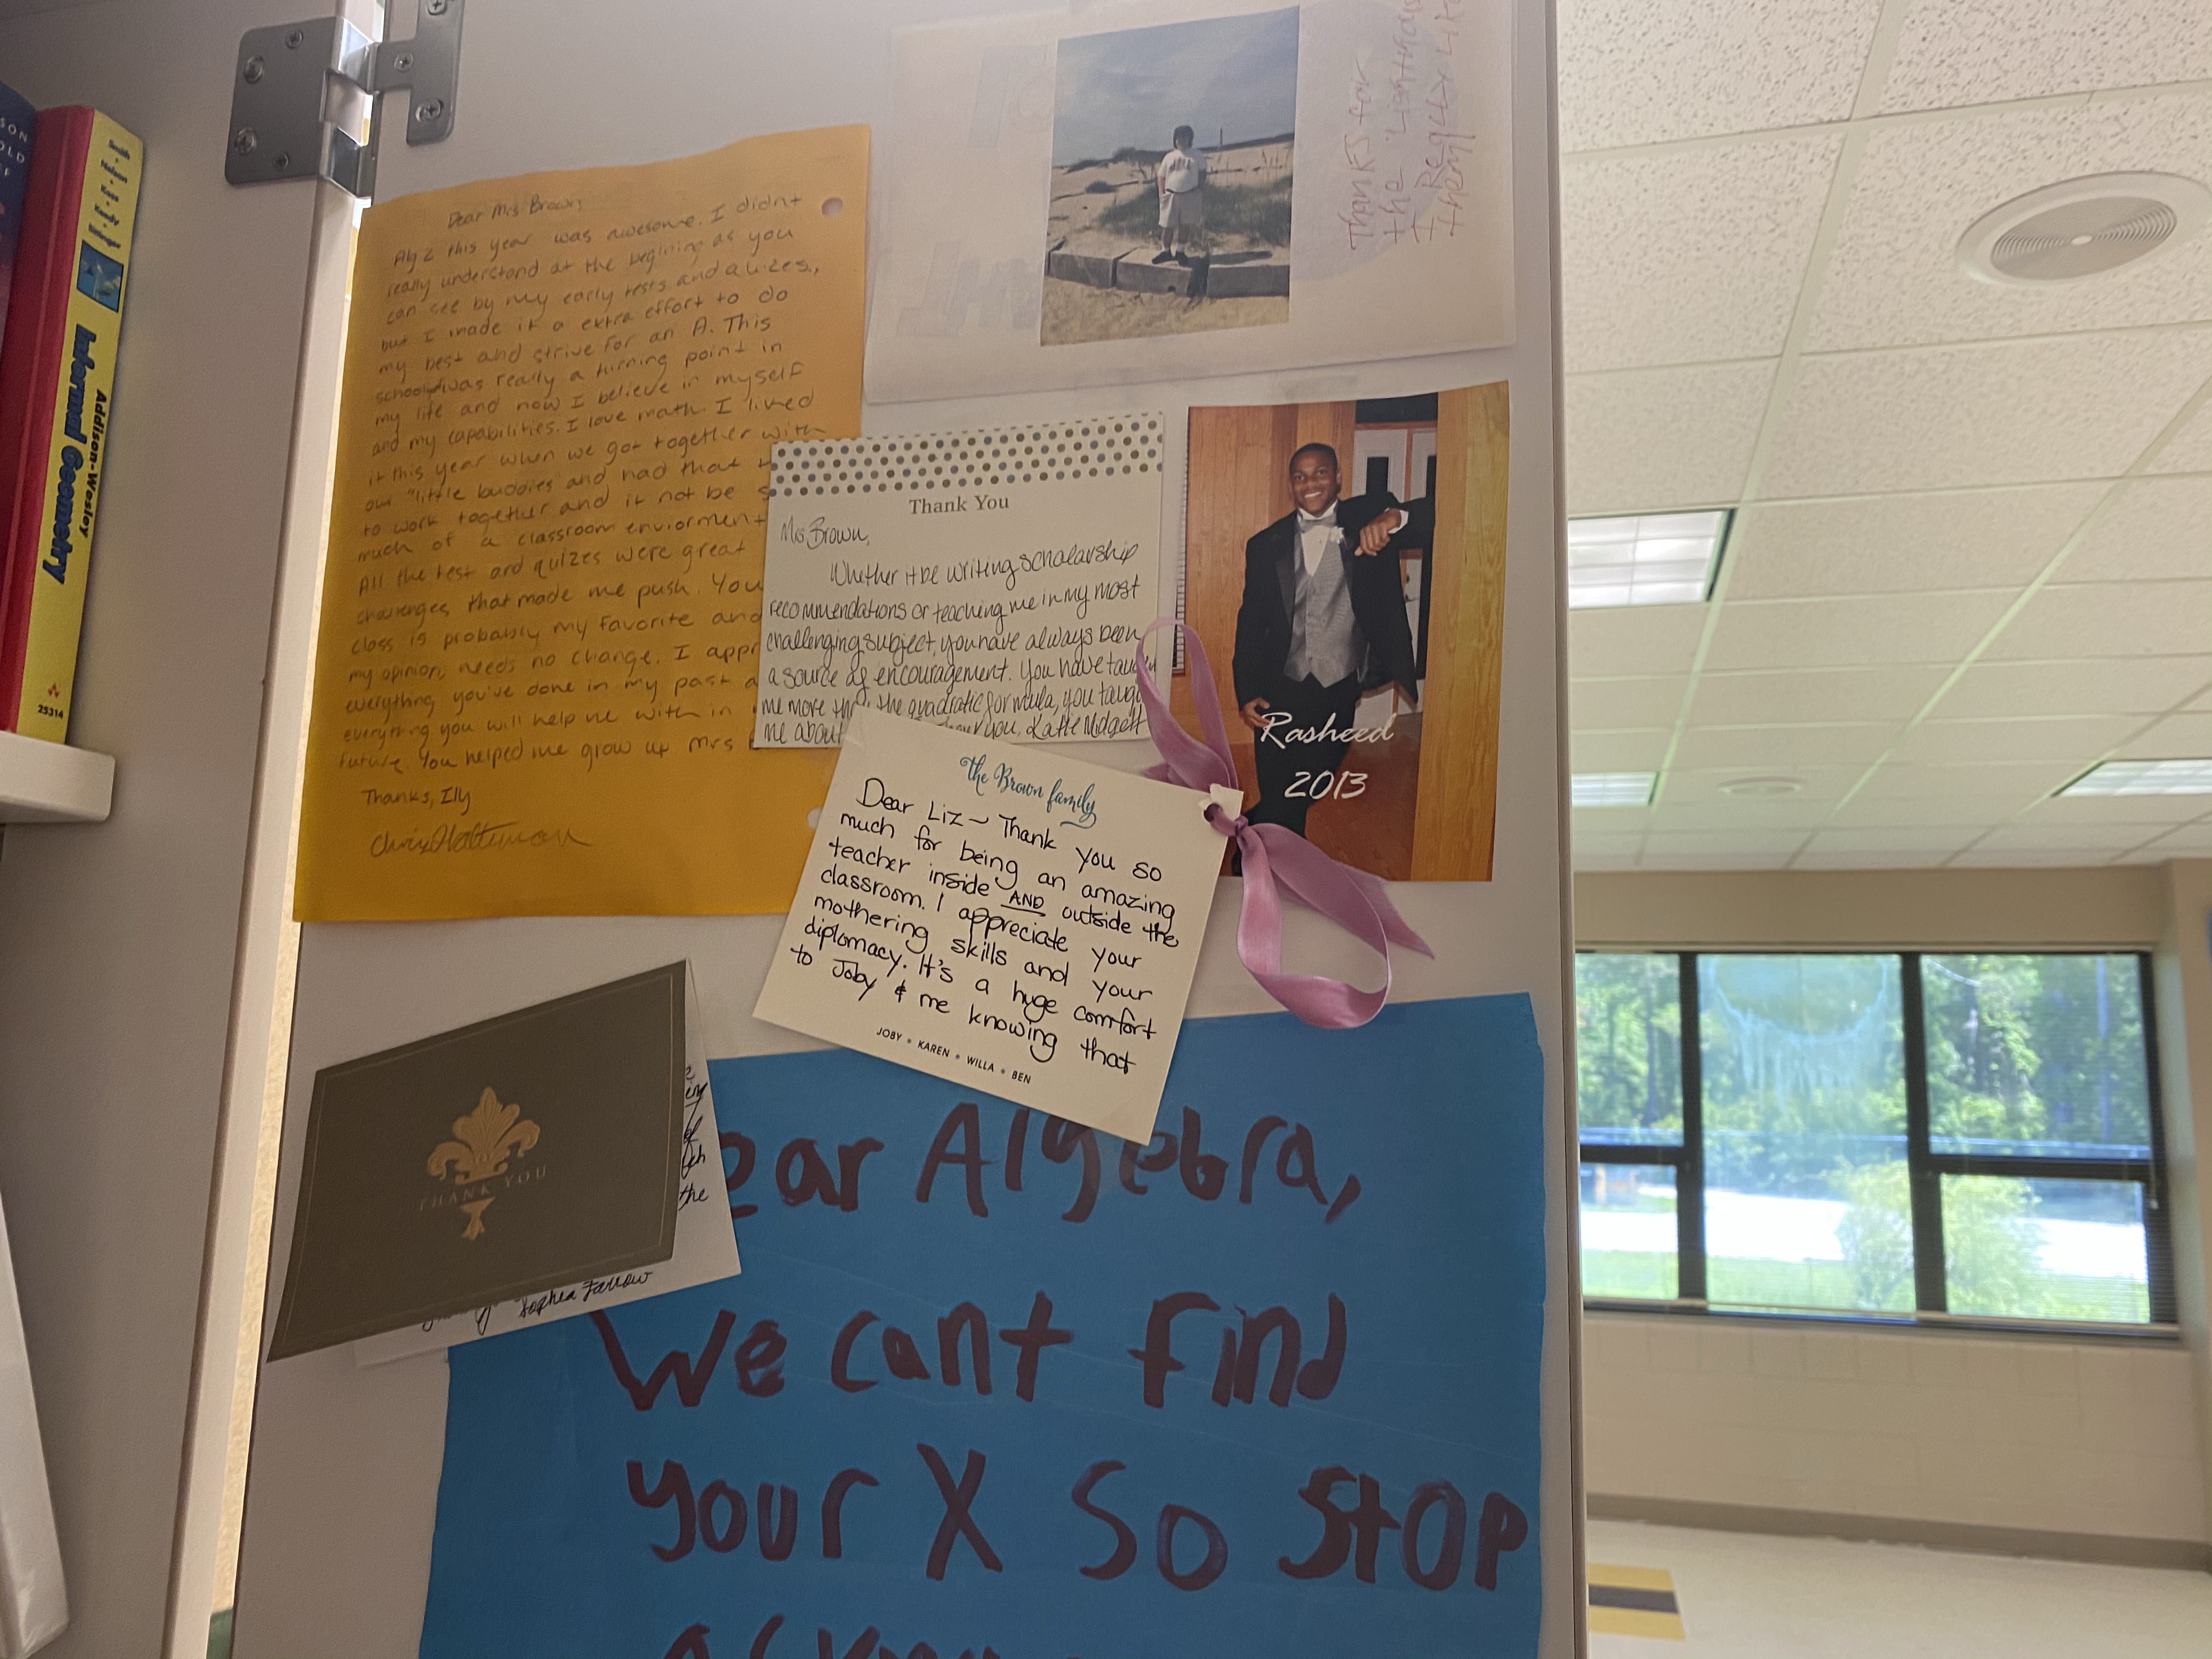 Smith • Nelson • Koss • Keedy • Bittinger
Informal Geometry
Addison-Wesley
25314
Dear Mrs Brown,
Alg 2 this year was awesome. I didn't
really understand at the begining as you
can see by my early tests and quizes,
but I made it a extra effort to do
my best and strive for an A. This
was really a turning point in
my life and now I believe in myself
and my capabilities. I love math. I liked
it this year when we got together with
our "little buddies" and had that
to work together and it not be
much of a classroom enviorment
All the test and quizes were great
challenges that made me push. You
class is probably my favorite and
my opinion, needs no change. I appr
everything you've done in my past a
everything you will help me with in
future. You helped me grow up Mrs
Thanks, Illy
THANKS for
the
I
Thank You
Mrs. Brown,
Whether it be writing scholarship
recommendations or teaching me in my most
challenging subject, you have always been
a source of encouragement. You have taugh
me more the quadratic formula, you taug
me about you, Katie Midgett
Rasheed
2013
The Brown family
Dear Liz ~ Thank you so
much for being an amazing
teacher inside AND outside the
classroom. I appreciate your
mothering skills and your
diplomacy. It's a huge comfort
to Joby & me knowing that
JOBY • KAREN • WILLA • BEN
THANK YOU
the
Sophia Farrow
ear Algebra,
We cant find
your X So Stop